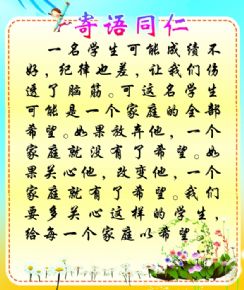 寄语同仁
一名学生可能成绩不
好，纪律也差，让我们伤
透了脑筋。可这名学生
可能是一个家庭的全部
希望。如果放弃他，一个
家庭就没有了希望。如
果关心他，改变他，一个
家庭就有了希望。我们
要多关心这样的学生，
给每一个家庭以希望